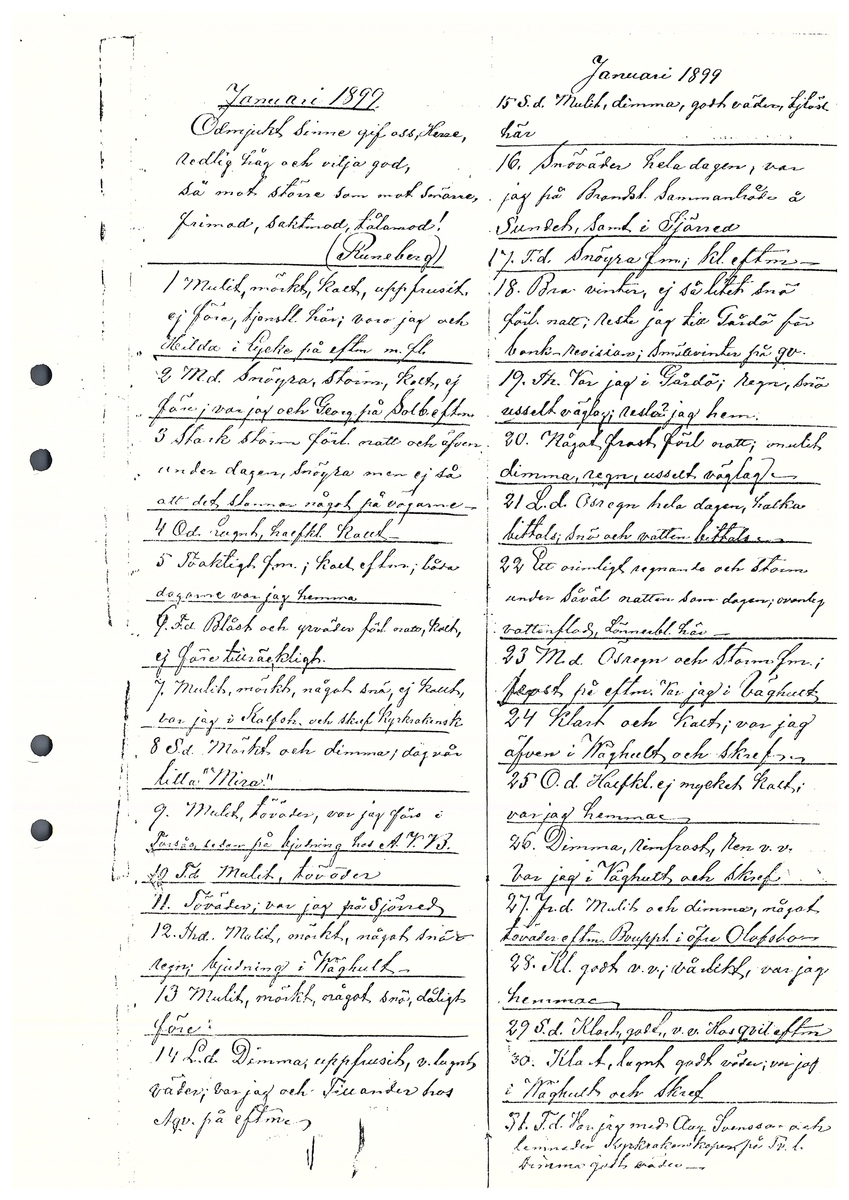 Januari 1899
Ödmjukt sinne gif oss, Herre,
redlig håg och vilja god,
så mot större som mot smärre,
frimod, saktmod, tålamod!
(Runeberg)
1 Mulit, mörkt, kalt, uppfrusit
ej före, här; voro jag och
Hilda i på eftm m. fl.
2 Md. Snögra, storm, kalt, ej
före; var jag och Georg på eftm
3 Stark storm förl. natt och äfven
under dagen, snögra men ej så
att det stannar något på vägarne
4 Od. lugnt, halfkl. kallt
5 Töaktigt f.m.; kalt eftm; båda
dagarne var jag hemma
6. T.d Blåst och yrväder förl. natt, kalt,
ej före tillräckligt.
7. Mulit, mörkt, något snö, ej kallt,
var jag i och skref
8 S.d. Mörkt och dimma; dog vår
lilla "Mira"
9. Mulit, töväder, var jag förs i
sedan på bjudning hos A. V. B.
10 T.d Mulit, töväder
11. Töväder; var jag på Sjörred
12. Hd. Mulit, mörkt, något snö
regn; bjudning i Wäghult
13 Mulit, mörkt, något snö, dåligt
före:
14 L.d. Dimma, uppfrusit, v. lugnt
väder; var jag och hos
på eftm
Januari 1899
15 S.d. Mulit, dimma, godt väder,
här
16. Snöväder hela dagen, var
jag på Brandst. Sammanträde å
Sundet, samt i Sjörred
17. T.d. Snögra f.m; kl. eftm
18. Bra vinter, ej så litet snö
förl. natt; reste jag till Gårdö för
bank-revision; på gv.
19. Th. Var jag i Gårdö; regn, snö
usselt väglag; reste jag hem.
20. Något frost förl natt; mulit
dimma, regn, usselt väglag
21 L.d. Ösregn hela dagen, halka
bittals; snö och vatten bittals
22 Ett orimligt regnande och storm
under såväl natten som dagen; ovanlig
vattenflod, här
23 M.d. Ösregn och storm f.m.;
frost på eftm. Var jag i Wäghult
24 Klart och kalt; var jag
äfven i Wäghult och skref
25 O.d. Halfkl. ej mycket kalt;
var jag hemma
26. Dimma, rimfrost, v. v.
Var jag i Wäghult och skref
27. Fr.d. Mulit och dimma, något
töväder eftm. i öfre Olofsbo
28. Kl. godt v. v; vårlikt, var jag
hemma
29 S.d. Klart, godt, v. v. eftm
30. Klart, lugnt godt väder; var jag
i Wäghult och skref
31. T.d. Var jag med Aug. Svensson och
lemnade på
Dimma godt väder